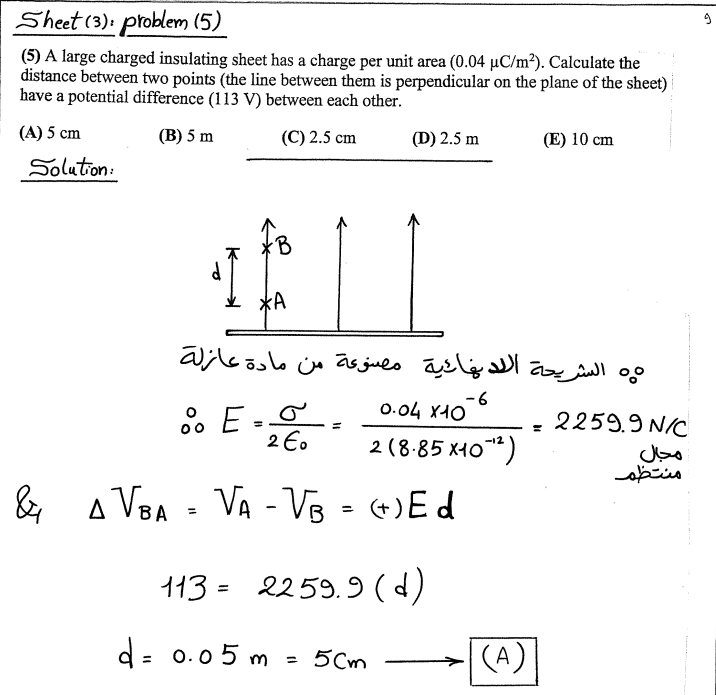 Sheet (3): problem (5)
9
(5) A large charged insulating sheet has a charge per unit area (0.04 μC/m²). Calculate the
distance between two points (the line between them is perpendicular on the plane of the sheet)
have a potential difference (113 V) between each other.
(A) 5 cm (B) 5 m (C) 2.5 cm (D) 2.5 m (E) 10 cm
Solution:
B
d
A
∵ الشريحة اللانهائية مصنوعة من مادة عازلة
∴ E = σ / 2ϵ₀ = 0.04 x10⁻⁶ / 2 (8.85 x10⁻¹²) = 2259.9 N/C
مجال
منتظم
& Δ V_BA = V_A - V_B = (+) E d
113 = 2259.9 (d)
d = 0.05 m = 5 cm → (A)